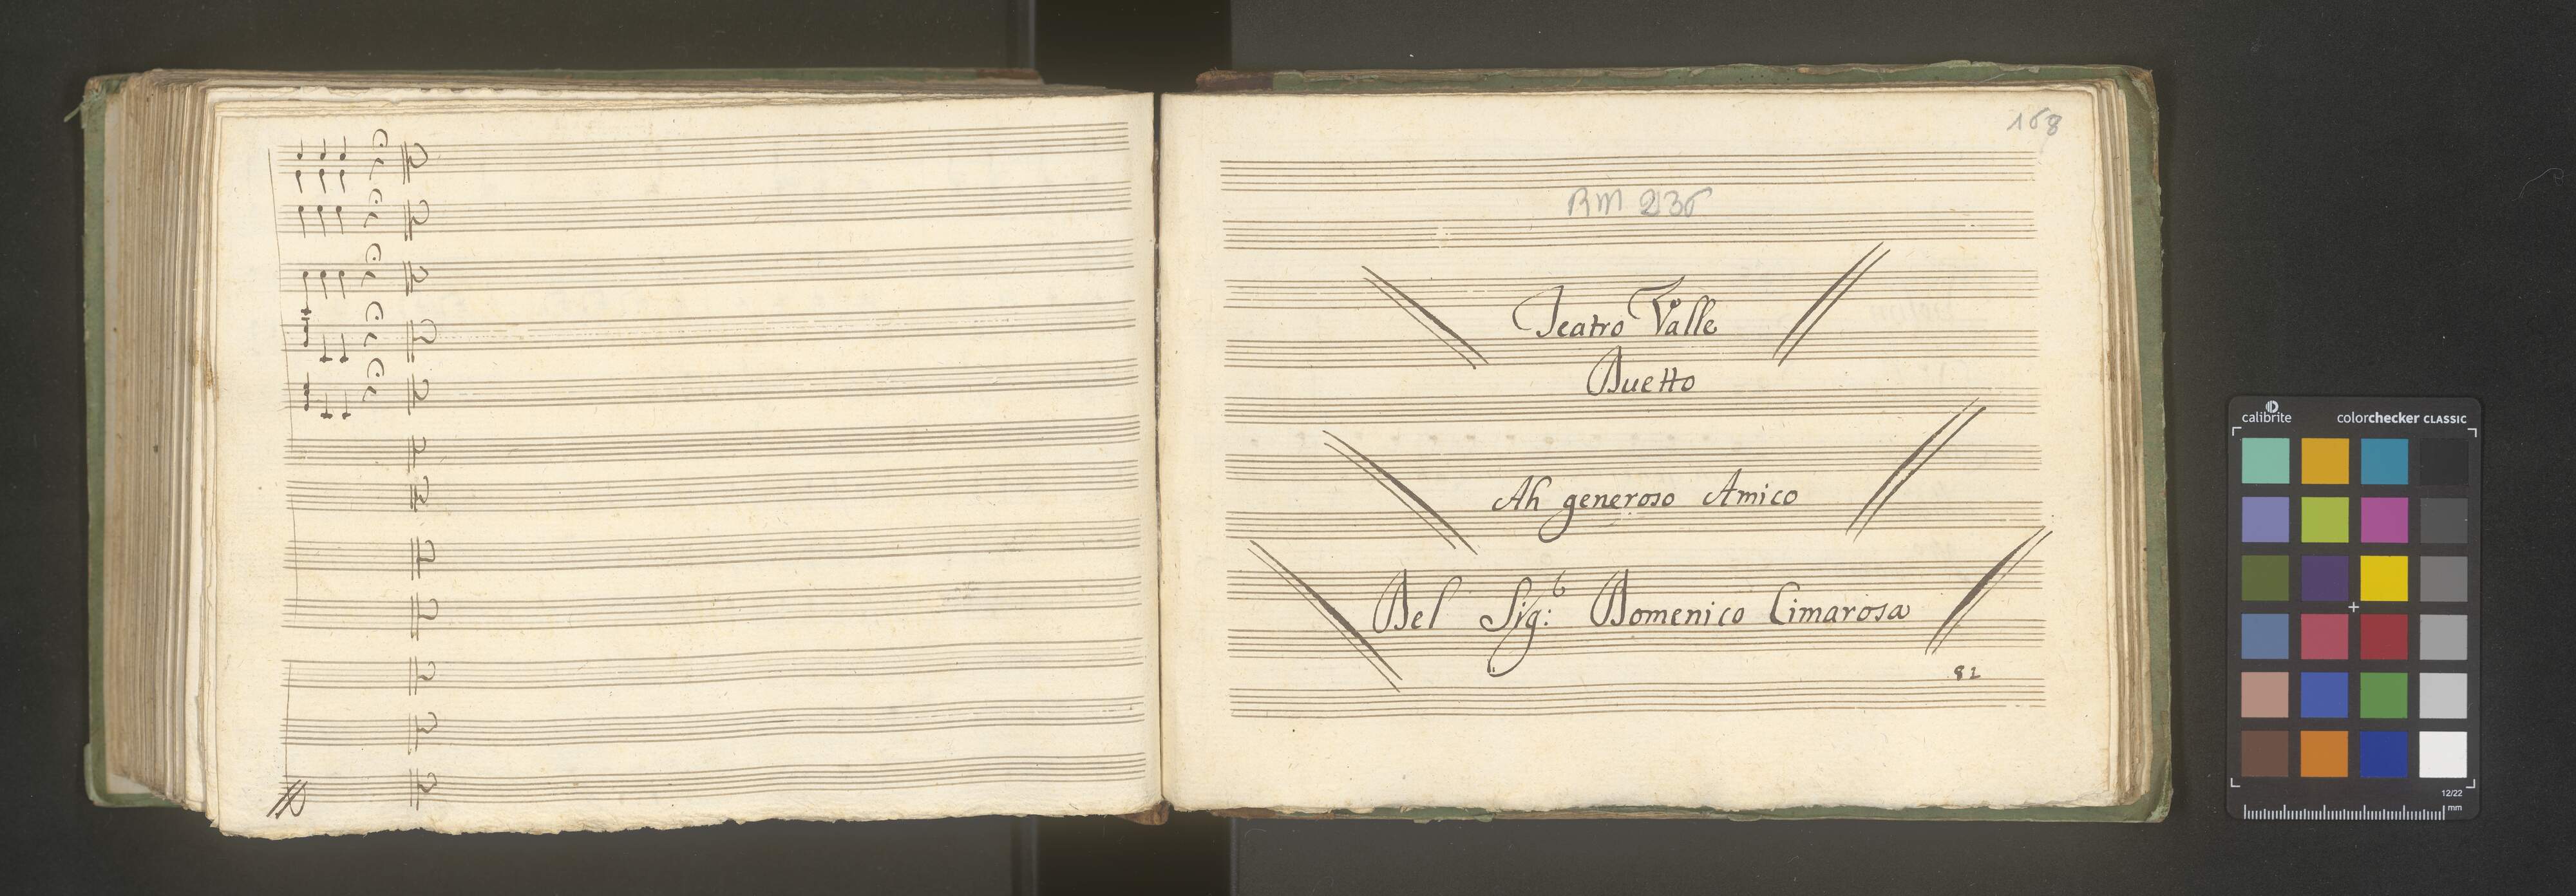 168
RM 236
Teatro Valle
Duetto
Ah generoso Amico
Del Sig:r Domenico Cimarosa
82
calibrite colorchecker CLASSIC
12/22
mm